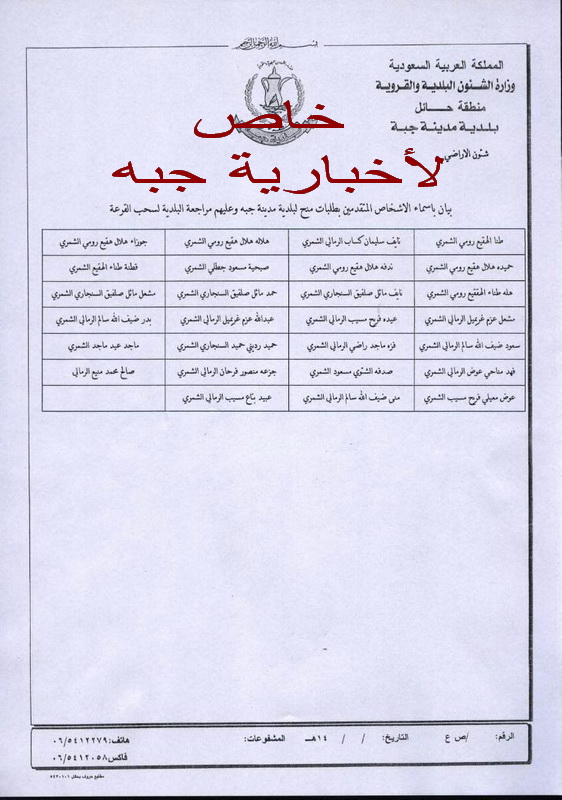 بسم الله الرحمن الرحيم
المملكة العربية السعودية
وزارة الشئون البلدية والقروية
منطقة حائل
بلدية مدينة جبة
شئون الاراضي
خاص
لأخبارية جبه
بيان باسماء الاشخاص المتقدمين بطلبات منح لبلدية مدينة جبه وعليهم مراجعة البلدية لسحب القرعة
طنا الهقيع رومي الشمري نايف سليمان كساب الرمالي الشمري هلاله هلال هقيع رومي الشمري جوزاء هلال هقيع رومي الشمري
حميده هلال هقيع رومي الشمري ندفه هلال هقيع رومي الشمري صبحية مسعود جطلي الشمري قطنة طناء الهقيع الشمري
هله طناء الهقيع رومي الشمري نايف ماثل صلفيق السنجاري الشمري حمد ماثل صلفيق السنجاري الشمري مشعل ماثل صلفيق السنجاري الشمري
مشعل عزم غريبل الرمالي الشمري عيده فريح مسيب الرمالي الشمري عبدالله عزم غريبل الرمالي الشمري بدر ضيف الله سالم الرمالي الشمري
سعود ضيف الله سالم الرمالي الشمري فزه ماجد راضي الرمالي الشمري حميد رديني حميد السنجاري الشمري ماجد عيد ماجد الشمري
فهد مناحي عوض الرمالي الشمري صدفه الشتوي مسعود الشمري جزعه منصور فرحان الرمالي الشمري صالح محمد منيع الرمالي
عوض معيلي فريح مسيب الشمري منى ضيف الله سالم الرمالي الشمري عبيد بتاع مسيب الرمالي الشمري
الرقم: /ص ع التاريخ: / / ١٤هـ المشفوعات: هاتف: ٠٦/٥٤١٢٢٧٩
فاكس: ٠٦/٥٤١٢٠٥٨